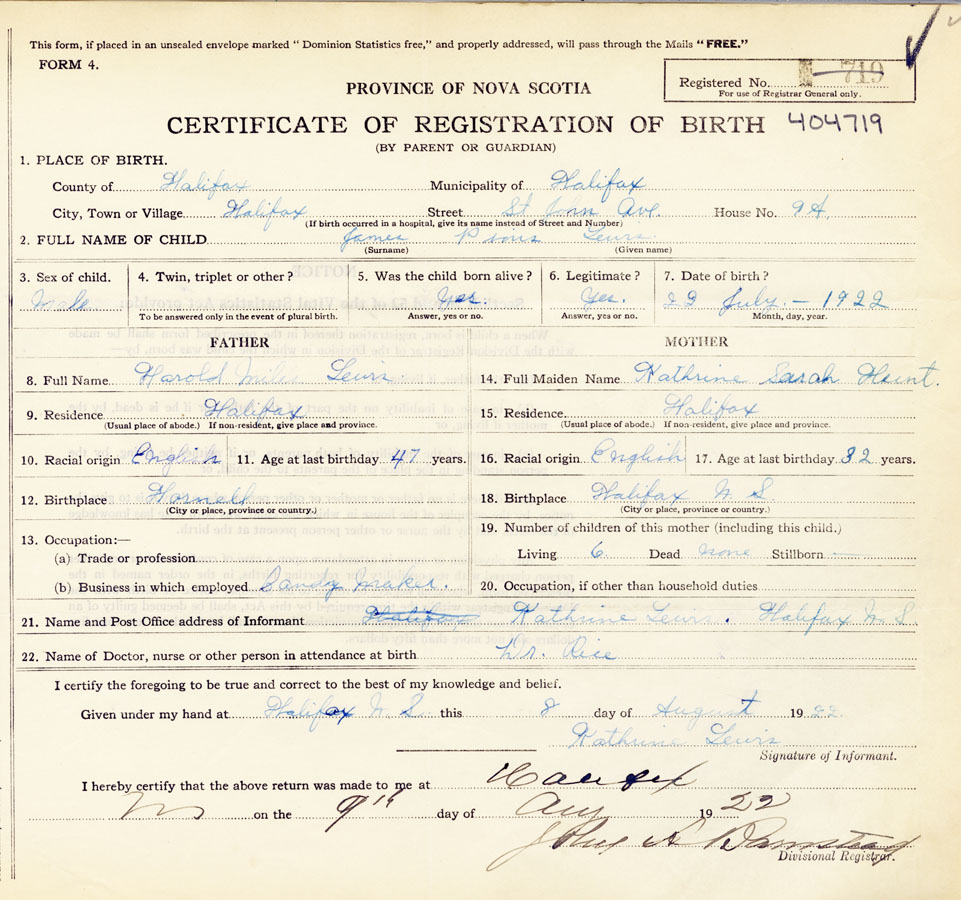 This form, if placed in an unsealed envelope marked "Dominion Statistics free," and properly addressed, will pass through the Mails "FREE."
FORM 4.
Registered No. 719
For use of Registrar General only.
PROVINCE OF NOVA SCOTIA
CERTIFICATE OF REGISTRATION OF BIRTH 404719
(BY PARENT OR GUARDIAN)
1. PLACE OF BIRTH.
County of Halifax Municipality of Halifax
City, Town or Village Halifax Street St Ave. House No. 9A.
(If birth occurred in a hospital, give its name instead of Street and Number)
2. FULL NAME OF CHILD James Lewis
(Surname) (Given name)
3. Sex of child. 4. Twin, triplet or other? 5. Was the child born alive? 6. Legitimate? 7. Date of birth?
Male Yes. Yes. 29 July. - 1922
To be answered only in the event of plural birth. Answer, yes or no. Answer, yes or no. Month, day, year.
FATHER MOTHER
8. Full Name Harold Miles Lewis. 14. Full Maiden Name Kathrine Sarah
9. Residence Halifax 15. Residence. Halifax
(Usual place of abode.) If non-resident, give place and province. (Usual place of abode.) If non-resident, give place and province.
10. Racial origin English 11. Age at last birthday 47 years. 16. Racial origin English 17. Age at last birthday 32 years.
12. Birthplace 18. Birthplace Halifax N. S.
(City or place, province or country.) (City or place, province or country.)
13. Occupation:— 19. Number of children of this mother (including this child.)
(a) Trade or profession Living 6 Dead none Stillborn —
(b) Business in which employed maker. 20. Occupation, if other than household duties
21. Name and Post Office address of Informant Halifax Kathrine Lewis. Halifax N S
22. Name of Doctor, nurse or other person in attendance at birth Dr. Rice
I certify the foregoing to be true and correct to the best of my knowledge and belief.
Given under my hand at Halifax N. S. this 8 day of August 1922.
Kathrine Lewis
Signature of Informant.
I hereby certify that the above return was made to me at Halifax
NS on the 9th day of Aug 1922
John A
Divisional Registrar.